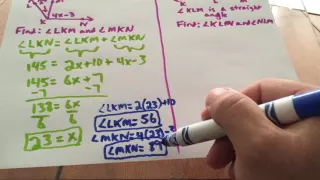 4x-3
N
Find: ∠LKM and ∠MKN
∠LKN = ∠LKM + ∠MKN
145 = 2x+10 + 4x-3
145 = 6x+7
-7 -7
138 = 6x
6 6
23 = x
∠LKM = 2(23)+10
∠LKM = 56
∠MKN = 4(23)-3
∠MKN = 89
∠KLM is a straight
angle
Find: ∠KLN and ∠NLM